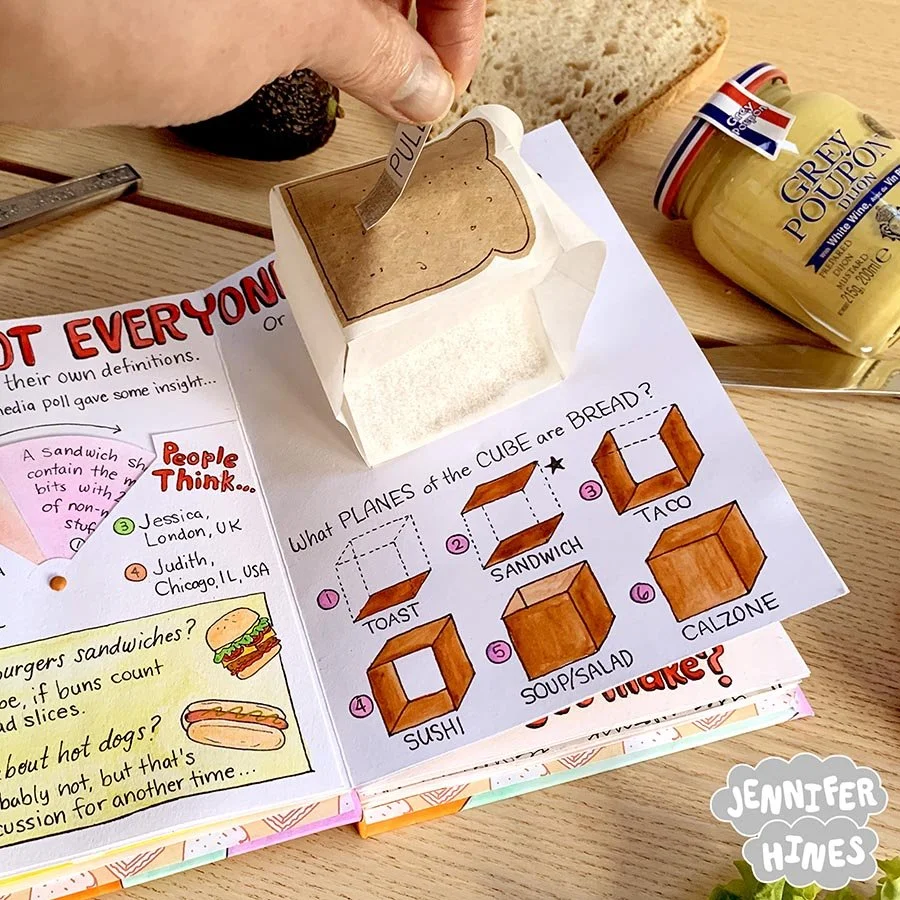 PULL
GREY
POUPON
GREY
POUPON
DIJON
with White Wine,
PREPARED
DIJON
MUSTARD
215g, 200ml e
OT EVERYON
their own definitions.
media poll gave some insight...
A sandwich
contain the
bits with
of non-
People
Think...
3 Jessica,
London, UK
4 Judith,
Chicago, IL, USA
burgers sandwiches?
be, if buns count
ad slices.
bout hot dogs?
bably not, but that's
cussion for another time...
Or
What PLANES of the CUBE are BREAD?
1 TOAST
2 SANDWICH
3 TACO
4 SUSHI
5 SOUP/SALAD
6 CALZONE
make?
JENNIFER
HINES